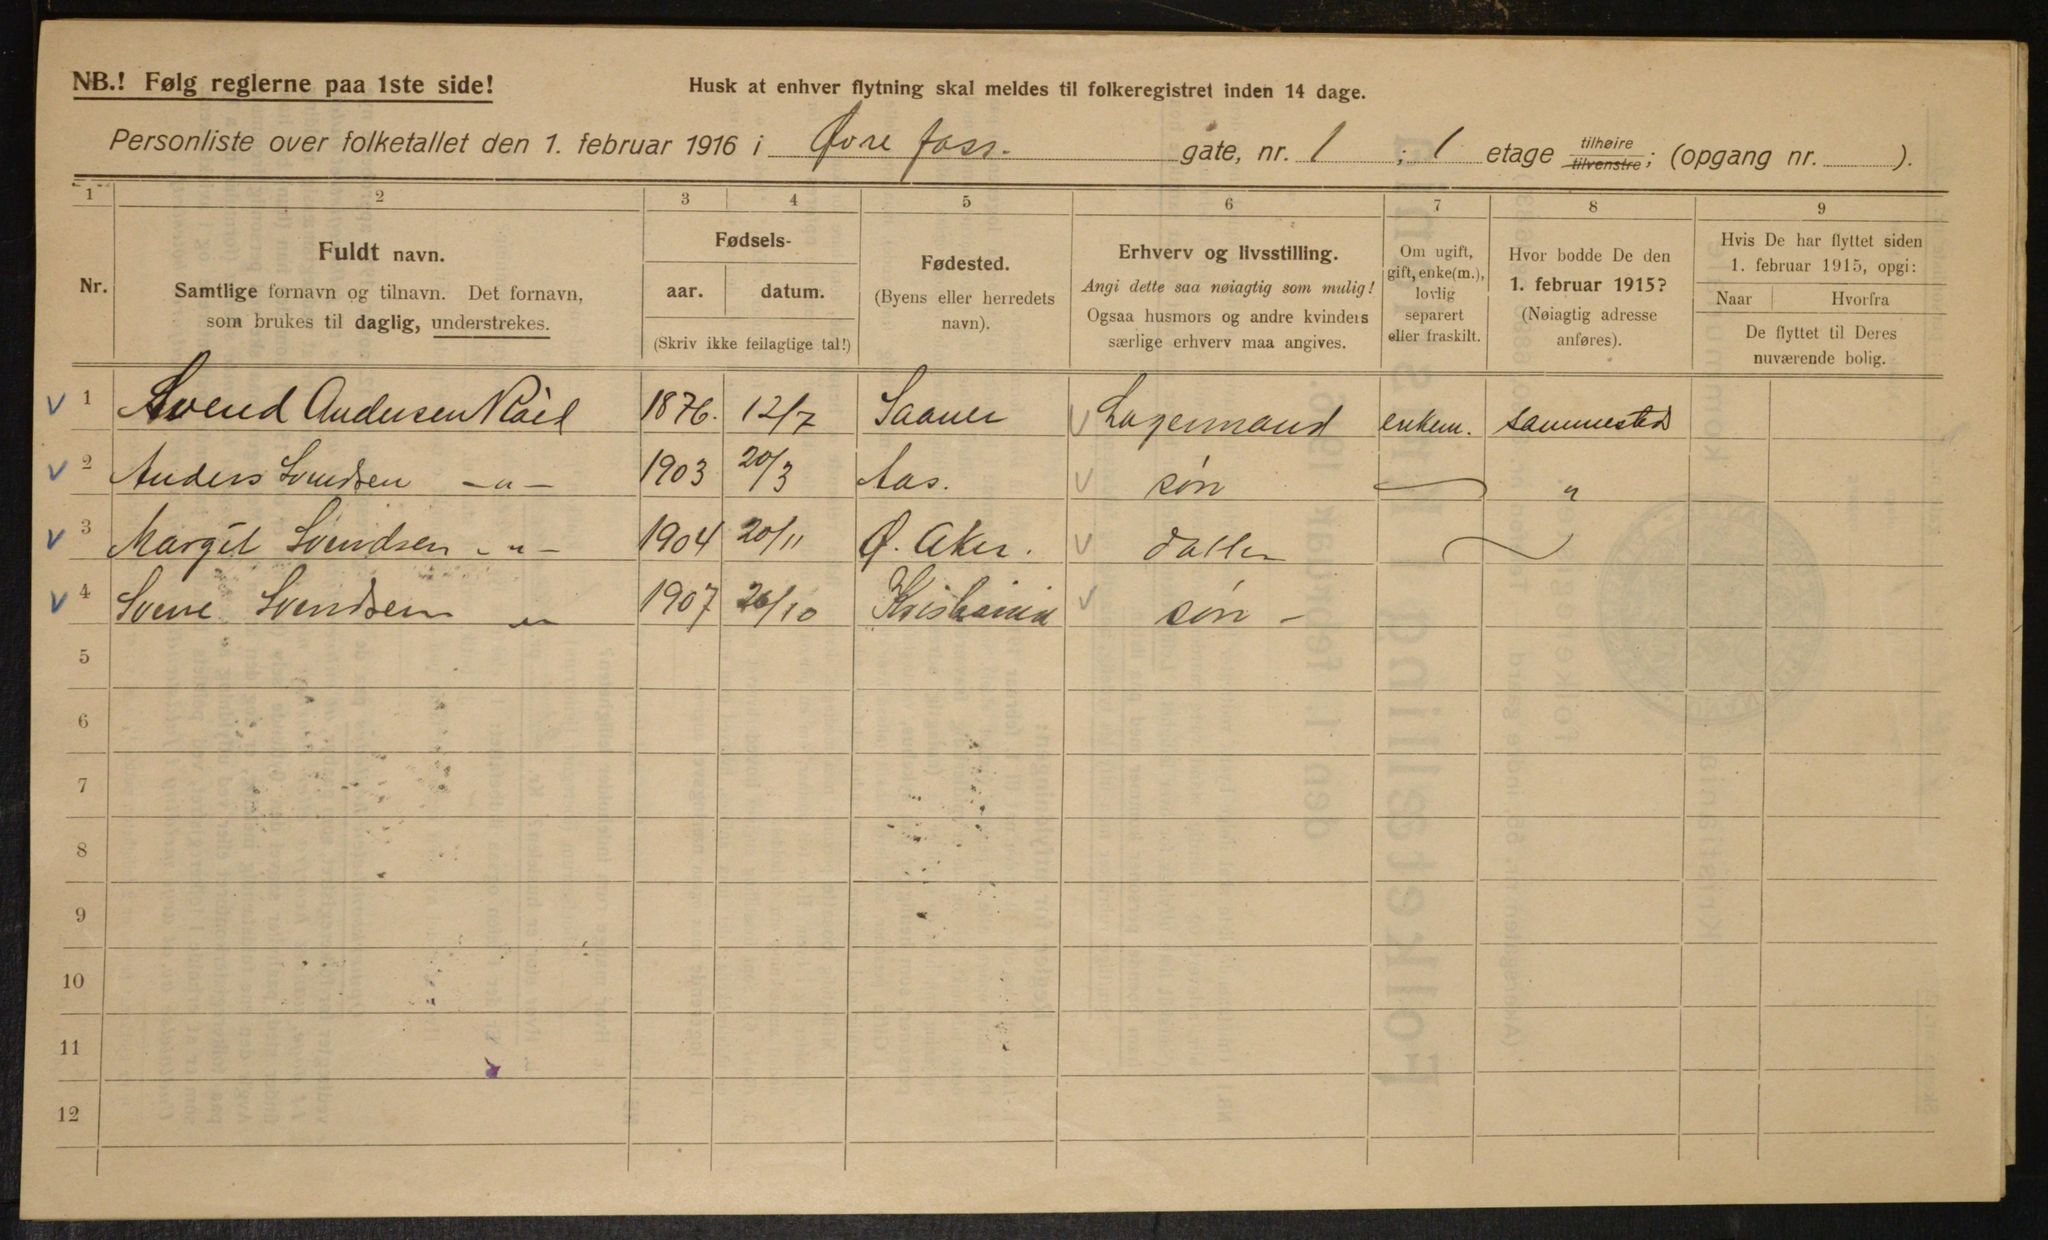 NB.! Følg reglerne paa 1ste side!
Husk at enhver flytning skal meldes til folkeregistret inden 14 dage.
Personliste over folketallet den 1. februar 1916 i Øvre foss. gate, nr. 1 ; 1 etage tilhøire tilvenstre; (opgang nr. ).
1 2 3 4 5 6 7 8 9
Nr.
Fuldt navn.
Samtlige fornavn og tilnavn. Det fornavn,
som brukes til daglig, understrekes.
Fødsels-
aar. datum.
(Skriv ikke feilagtige tal!)
Fødested.
(Byens eller herredets
navn).
Erhverv og livsstilling.
Angi dette saa nøiagtig som mulig!
Ogsaa husmors og andre kvinders
særlige erhverv maa angives.
Om ugift,
gift, enke(m.),
lovlig
separert
eller fraskilt.
Hvor bodde De den
1. februar 1915?
(Nøiagtig adresse
anføres).
Hvis De har flyttet siden
1. februar 1915, opgi:
Naar Hvorfra
De flyttet til Deres
nuværende bolig.
1 Svend Andersen 1876. 12/7 Saaner Lagermand enkem. sammested
2 Anders Svendsen -"- 1903 20/3 Aas. søn "
3 Margit Svendsen -"- 1904 20/11 Ø. Aker. datter
4 Svend Svendsen " 1907 26/10 Kristiania søn -
5
6
7
8
9
10
11
12